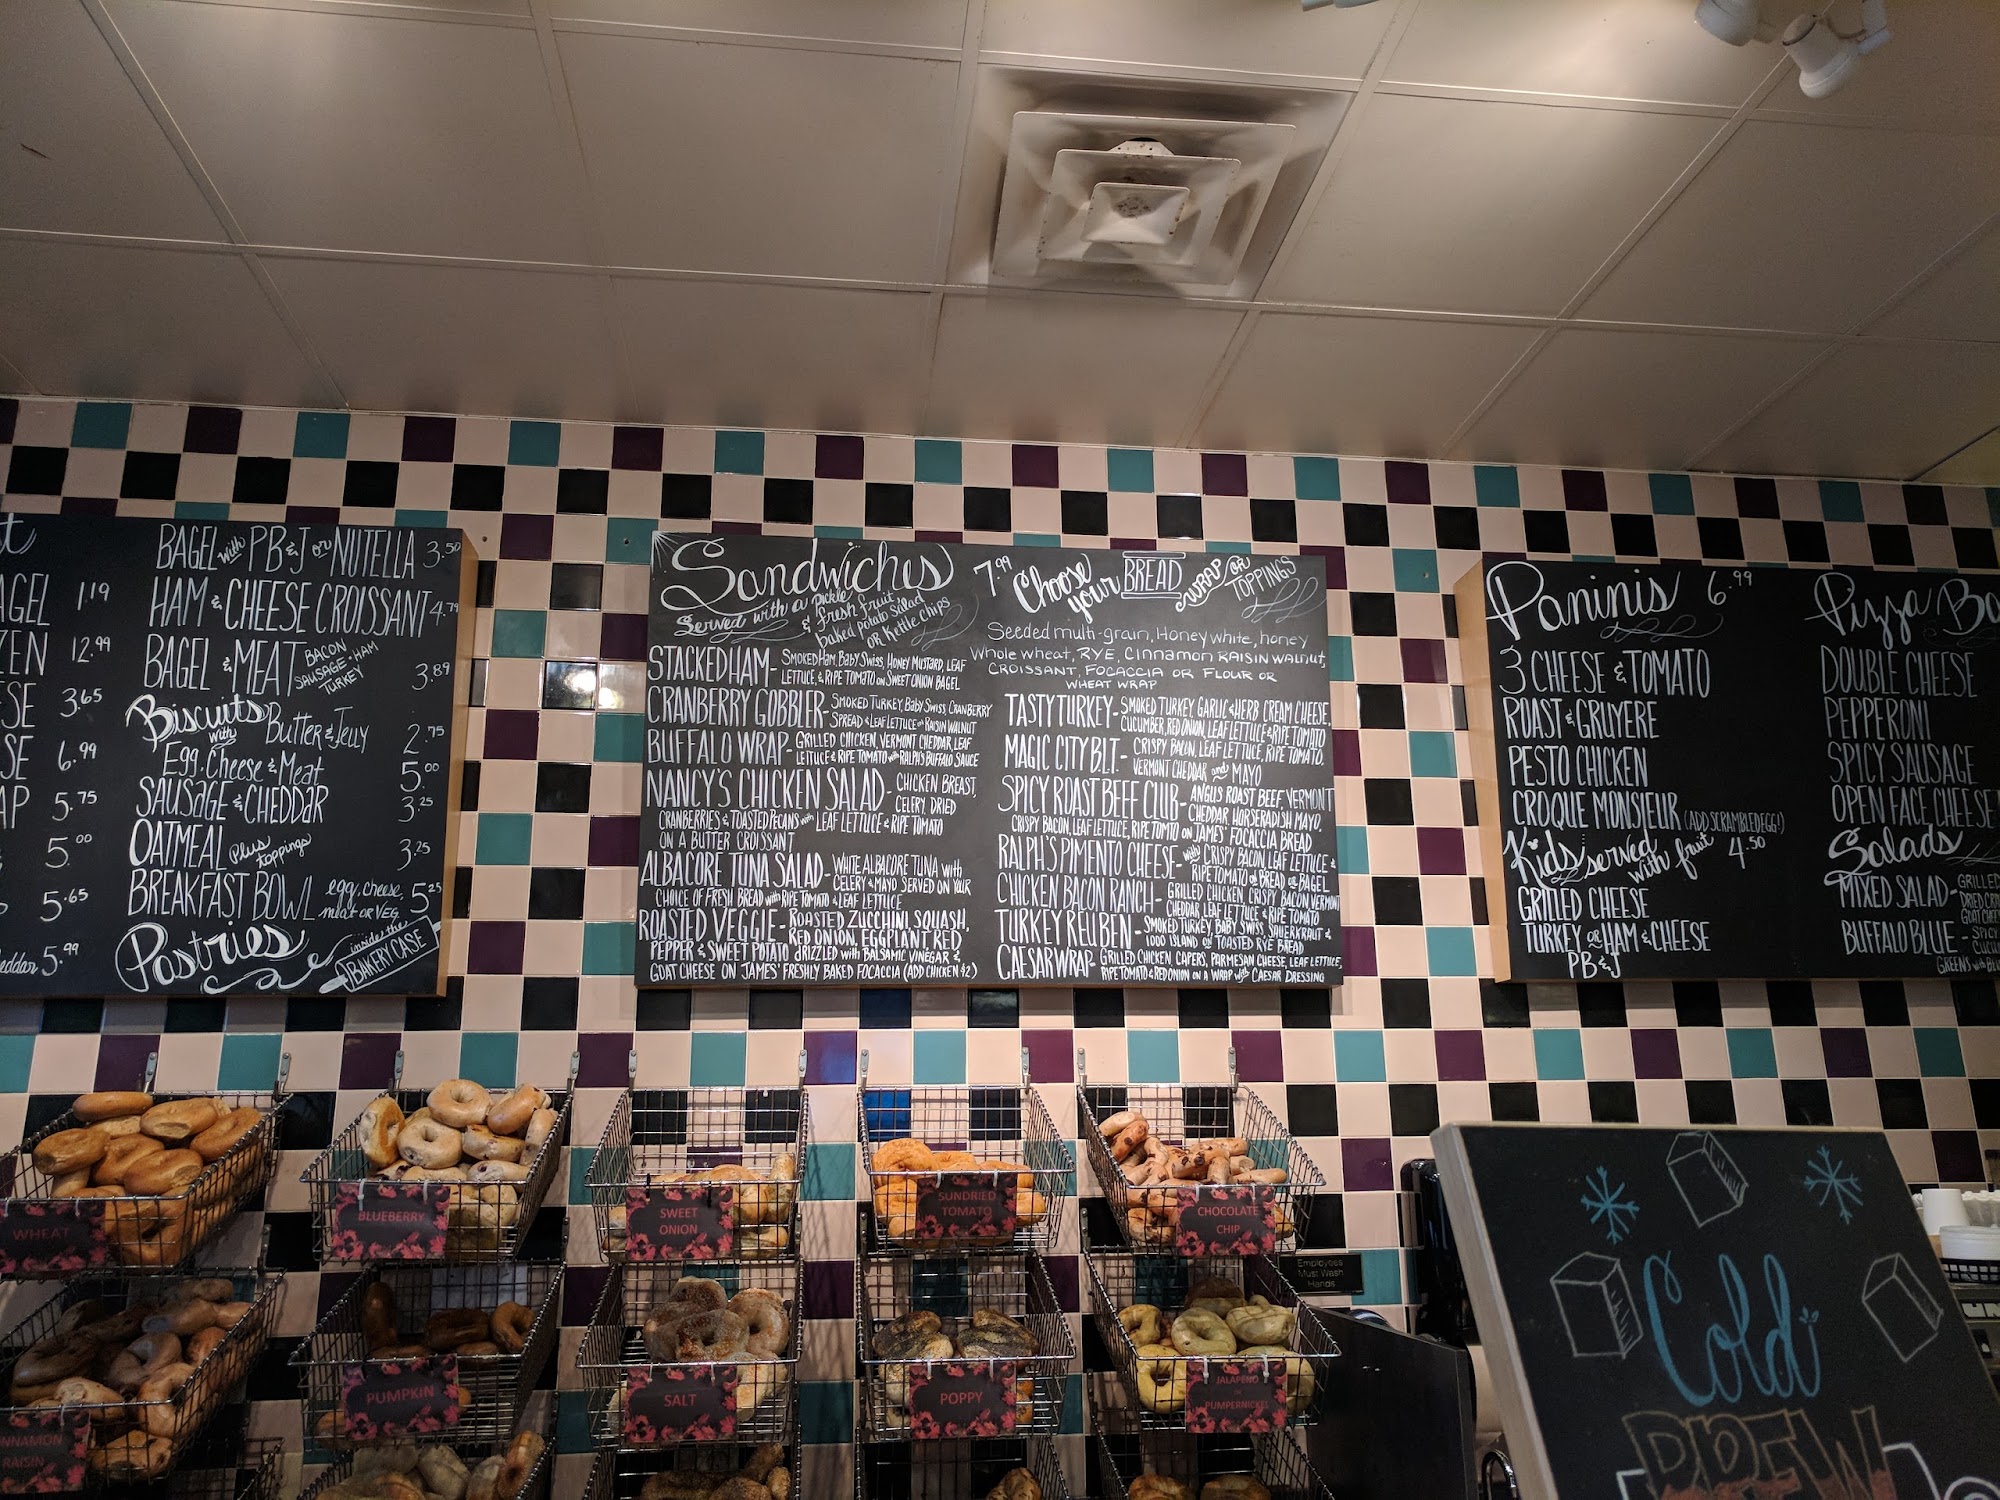 1.19
12.99
3.65
6.99
5.75
5.00
5.65
5.99
BAGEL with PB & J or NUTELLA 3.50
HAM & CHEESE CROISSANT 4.79
BAGEL & MEAT BACON
SAUSAGE · HAM
TURKEY 3.89
Biscuits
with Butter & Jelly 2.75
Egg, Cheese & Meat 5.00
SAUSAGE & CHEDDAR 3.25
OATMEAL Plus toppings 3.25
BREAKFAST BOWL egg, cheese,
meat OR VEG. 5.25
Pastries inside the
BAKERY CASE
Sandwiches 7.99
Served with a pickle
& fresh fruit
baked potato Salad
OR Kettle Chips
STACKED HAM - SMOKED HAM, BABY SWISS, HONEY MUSTARD, LEAF
LETTUCE, & RIPE TOMATO ON SWEET ONION BAGEL
CRANBERRY GOBBLER - SMOKED TURKEY, BABY SWISS, CRANBERRY
SPREAD & LEAF LETTUCE ON RAISIN WALNUT
BUFFALO WRAP - GRILLED CHICKEN, VERMONT CHEDDAR, LEAF
LETTUCE & RIPE TOMATO with RALPH'S BUFFALO SAUCE
NANCY'S CHICKEN SALAD - CHICKEN BREAST,
CELERY, DRIED
CRANBERRIES & TOASTED PECANS with LEAF LETTUCE & RIPE TOMATO
ON A BUTTER CROISSANT
ALBACORE TUNA SALAD - WHITE ALBACORE TUNA with
CELERY & MAYO SERVED ON YOUR
CHOICE OF FRESH BREAD with RIPE TOMATO & LEAF LETTUCE
ROASTED VEGGIE - ROASTED ZUCCHINI, SQUASH,
RED ONION, EGGPLANT, RED
PEPPER & SWEET POTATO DRIZZLED with BALSAMIC VINEGAR &
GOAT CHEESE ON JAMES' FRESHLY BAKED FOCACCIA (ADD CHICKEN $2)
Choose your BREAD WRAP or TOPPINGS
Seeded multi-grain, Honey white, honey
Whole wheat, RYE, Cinnamon RAISIN WALNUT,
CROISSANT, FOCACCIA OR FLOUR OR
WHEAT WRAP
TASTY TURKEY - SMOKED TURKEY, GARLIC & HERB CREAM CHEESE,
CUCUMBER, RED ONION, LEAF LETTUCE & RIPE TOMATO
MAGIC CITY B.L.T. - CRISPY BACON, LEAF LETTUCE, RIPE TOMATO,
VERMONT CHEDDAR and MAYO
SPICY ROAST BEEF CLUB - ANGUS ROAST BEEF, VERMONT
CHEDDAR, HORSERADISH MAYO,
CRISPY BACON, LEAF LETTUCE, RIPE TOMTO ON JAMES' FOCACCIA BREAD
RALPH'S PIMENTO CHEESE - with CRISPY BACON, LEAF LETTUCE &
RIPE TOMATO on BREAD or BAGEL
CHICKEN BACON RANCH - GRILLED CHICKEN, CRISPY BACON, VERMONT
CHEDDAR, LEAF LETTUCE & RIPE TOMATO
TURKEY REUBEN - SMOKED TURKEY, BABY SWISS, SAUERKRAUT &
1000 ISLAND on TOASTED RYE BREAD
CAESAR WRAP - GRILLED CHICKEN, CAPERS, PARMESAN CHEESE, LEAF LETTUCE,
RIPE TOMATO & RED ONION ON A WRAP with CAESAR DRESSING
Paninis 6.99
3 CHEESE & TOMATO
ROAST & GRUYERE
PESTO CHICKEN
CROQUE MONSIEUR (ADD SCRAMBLED EGG!)
Kids served with fruit 4.50
GRILLED CHEESE
TURKEY OR HAM & CHEESE
PB & J
Pizza Ba
DOUBLE CHEESE
PEPPERONI
SPICY SAUSAGE
OPEN FACE CHEESE
Salads
MIXED SALAD - GRILLED
BUFFALO BLUE - SPICY
WHEAT
BLUEBERRY
SWEET
ONION
SUNDRIED
TOMATO
CHOCOLATE
CHIP
Employees
Must Wash
Hands
NNAMON
RAISIN
PUMPKIN
SALT
POPPY
JALAPENO
or
PUMPERNICKEL
Cold
BREW